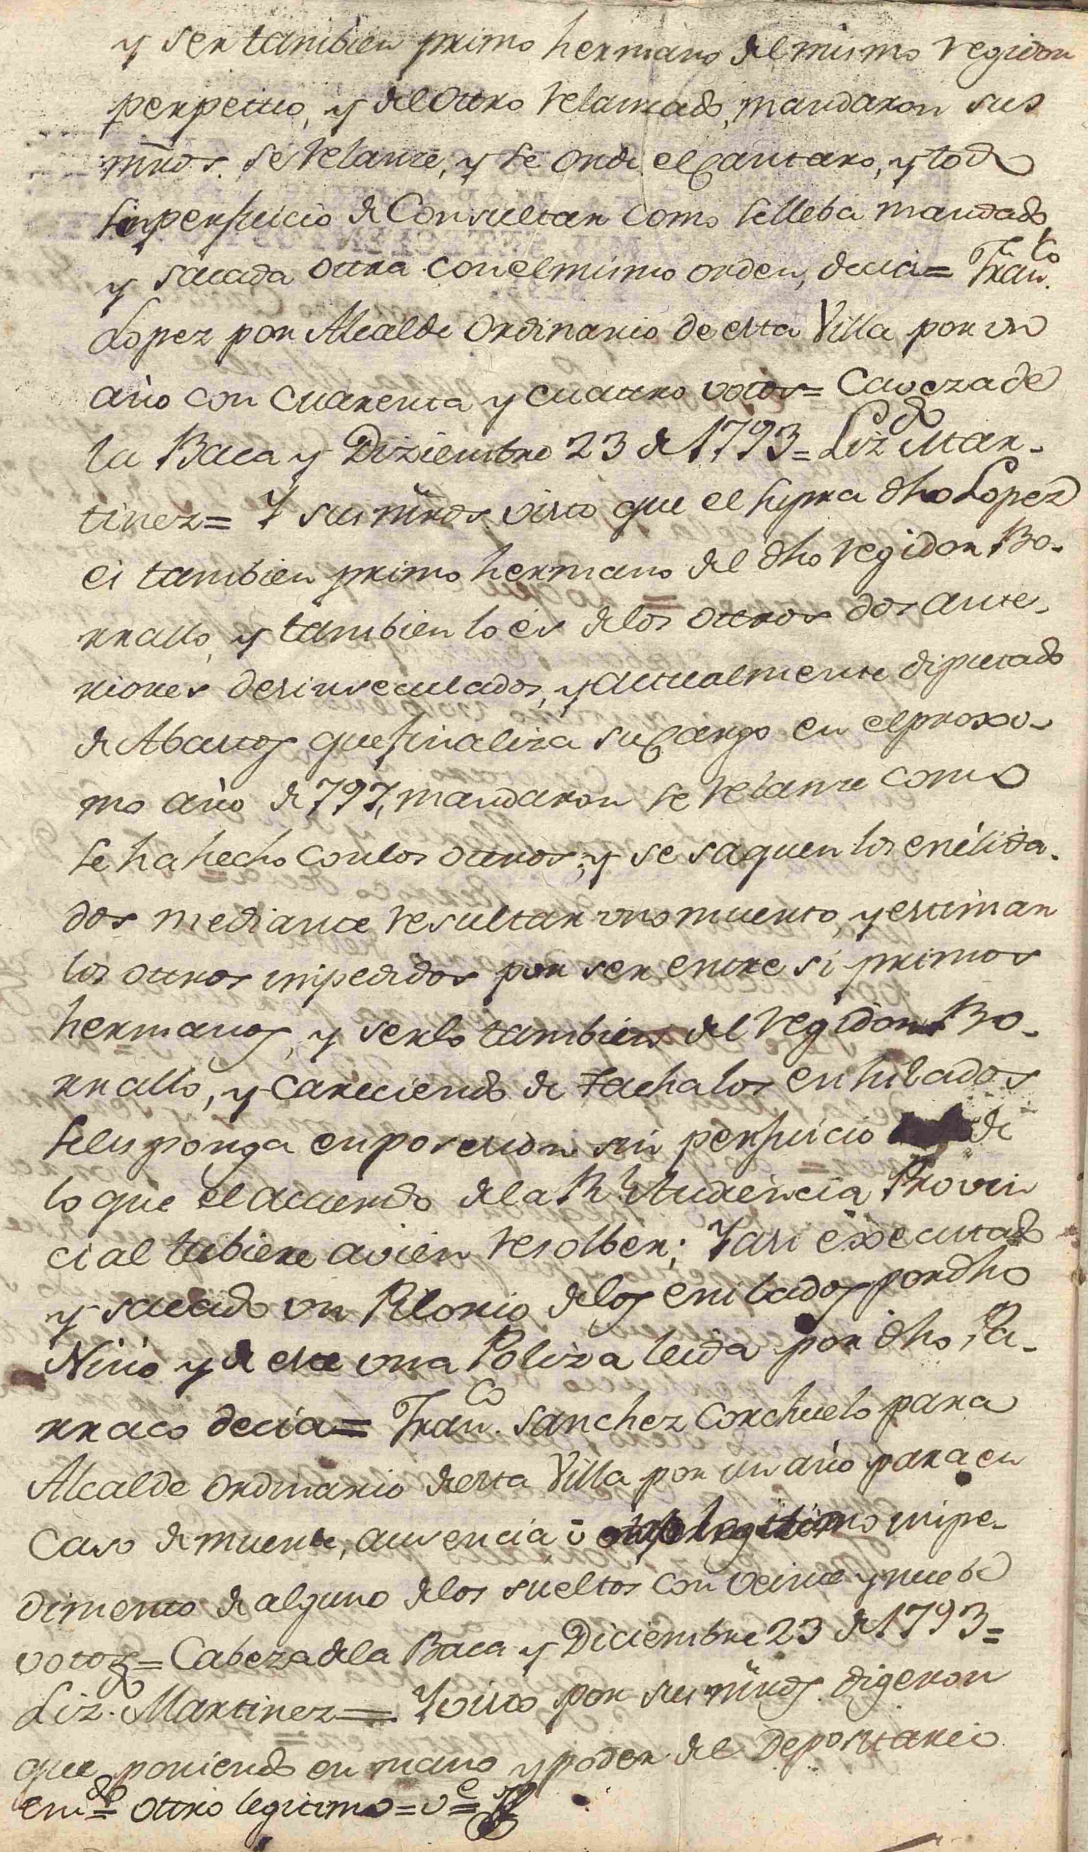 y ser tambien primo hermano del mismo regidor
perpetuo, y del ottro relanzado, mandaron sus
mrds. se relanze, y se orde el Cantaro, y todo
sin perjuicio de Consultar como se lleba mandado
y sacada ottra con el mismo orden, decia = Fran.co
Lopez por Alcalde Ordinario de esta Villa por un
año con cuarenta y cuattro votos = Caveza de
la Baca y Diziembre 23 de 1793 = Lizdo Mar-
tinez = Y sus mrds visto que el supra dho Lopez
es tambien primo hermano del dho regidor Bo-
rrallo, y tambien lo es de los ottros dos ante-
riores desinseculados, y actualmente diputado
de Abastos que finaliza su Cargo en el proxi-
mo año de 797, mandaron se relanze como
se ha hecho con los ottros; y se saquen los enélida-
dos mediante resultar uno muerto, y estiman
los ottros impedidos por ser entre si primos
hermanos, y serlo tambien del regidor Bo-
rrallo, y careciendo de tacha los enhilados
se les ponga en posesion sin perjuicio de
lo que el acuerdo de la Rl Audiencia Provin
cial tubiere a vien resolber; Y asi executado
y sacado un Pilorio de los enilados por dho
Niño y de este una Poliza leida por dho Pa-
rraco decia = Fran.co Sanchez Corchuelo para
Alcalde ordinario de esta Villa por un año para en
Caso de muerte, ausencia ó legitimo impe-
dimento de alguno de los sueltos con veinte y nuebe
votos = Cabeza de la Baca y Diciembre 23 de 1793 =
Liz.do Martinez = Y visto por sus mrds. digeron
que poniendo en mano y poder del Depositario
enm.do = ottro legitimo = v.e =